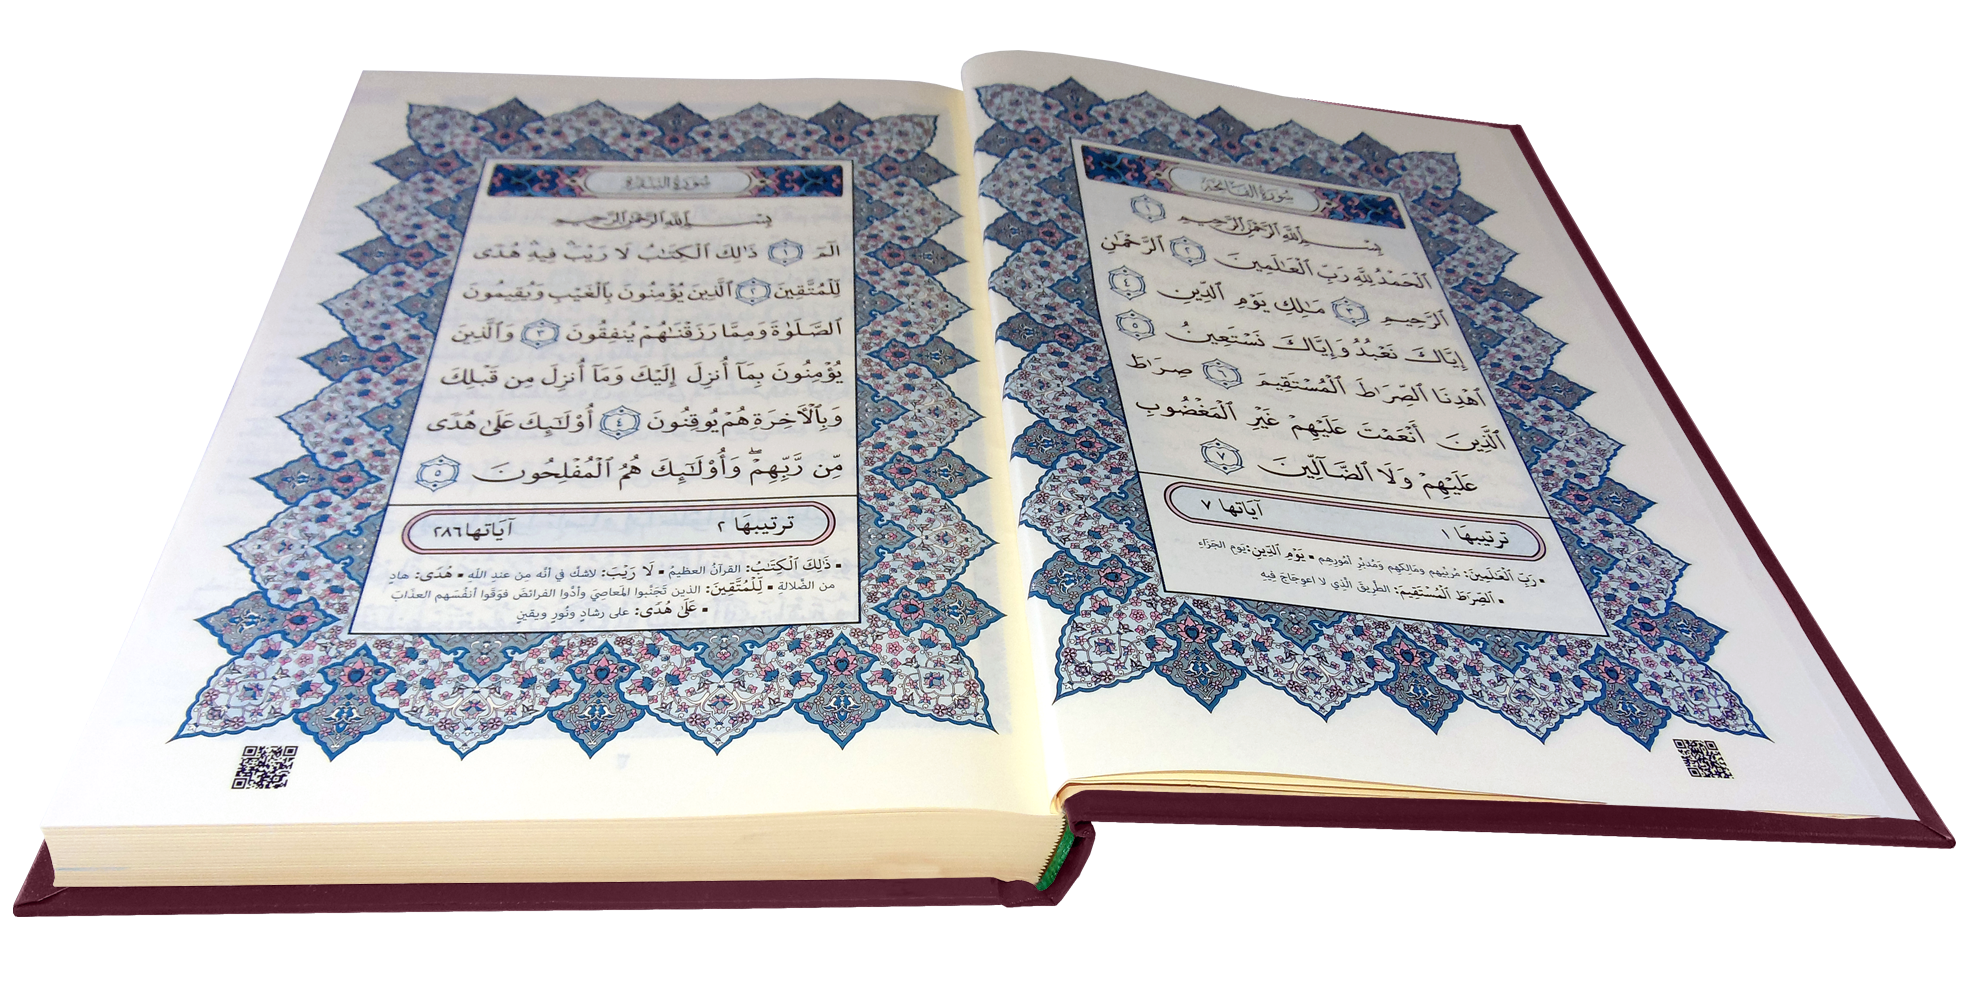 سُورَةُ الفَاتِحَةِ
بِسْمِ ٱللَّهِ ٱلرَّحْمَٰنِ ٱلرَّحِيمِ ١
ٱلْحَمْدُ لِلَّهِ رَبِّ ٱلْعَٰلَمِينَ ٢ ٱلرَّحْمَٰنِ
ٱلرَّحِيمِ ٣ مَٰلِكِ يَوْمِ ٱلدِّينِ ٤
إِيَّاكَ نَعْبُدُ وَإِيَّاكَ نَسْتَعِينُ ٥
ٱهْدِنَا ٱلصِّرَٰطَ ٱلْمُسْتَقِيمَ ٦ صِرَٰطَ
ٱلَّذِينَ أَنْعَمْتَ عَلَيْهِمْ غَيْرِ ٱلْمَغْضُوبِ
عَلَيْهِمْ وَلَا ٱلضَّآلِّينَ ٧
ترتيبهَا ١ آيَاتها ٧
▪ رَبِّ ٱلْعَٰلَمِينَ: مُربّيهم ومَالِكِهم وَمُدبّرِ أمُورِهم ▪ يَوْمِ ٱلدِّينِ: يَوم الجَزاءِ
▪ ٱلصِّرَٰطَ ٱلْمُسْتَقِيمَ: الطّريقَ الّذِي لا اعوجَاجَ فِيه
سُورَةُ البَقَرَةِ
بِسْمِ ٱللَّهِ ٱلرَّحْمَٰنِ ٱلرَّحِيمِ
الٓمٓ ١ ذَٰلِكَ ٱلْكِتَٰبُ لَا رَيْبَۛ فِيهِۛ هُدًى
لِّلْمُتَّقِينَ ٢ ٱلَّذِينَ يُؤْمِنُونَ بِٱلْغَيْبِ وَيُقِيمُونَ
ٱلصَّلَوٰةَ وَمِمَّا رَزَقْنَٰهُمْ يُنفِقُونَ ٣ وَٱلَّذِينَ
يُؤْمِنُونَ بِمَآ أُنزِلَ إِلَيْكَ وَمَآ أُنزِلَ مِن قَبْلِكَ
وَبِٱلْأَخِرَةِ هُمْ يُوقِنُونَ ٤ أُوْلَٰٓئِكَ عَلَىٰ هُدًى
مِّن رَّبِّهِمْۖ وَأُوْلَٰٓئِكَ هُمُ ٱلْمُفْلِحُونَ ٥
ترتيبهَا ٢ آيَاتها ٢٨٦
▪ ذَٰلِكَ ٱلْكِتَٰبُ: القرآنُ العظيمُ ▪ لَا رَيْبَ: لاشكّ في أنّه مِن عندِ اللّه ▪ هُدًى: هادٍ
من الضّلالةِ ▪ لِّلْمُتَّقِينَ: الذين تَجنّبوا المَعاصِيَ وأدّوا الفرائضَ فوَقَوا أنفُسَهم العذَابَ
▪ عَلَىٰ هُدًى: على رشادٍ ونُورٍ ويقينٍ